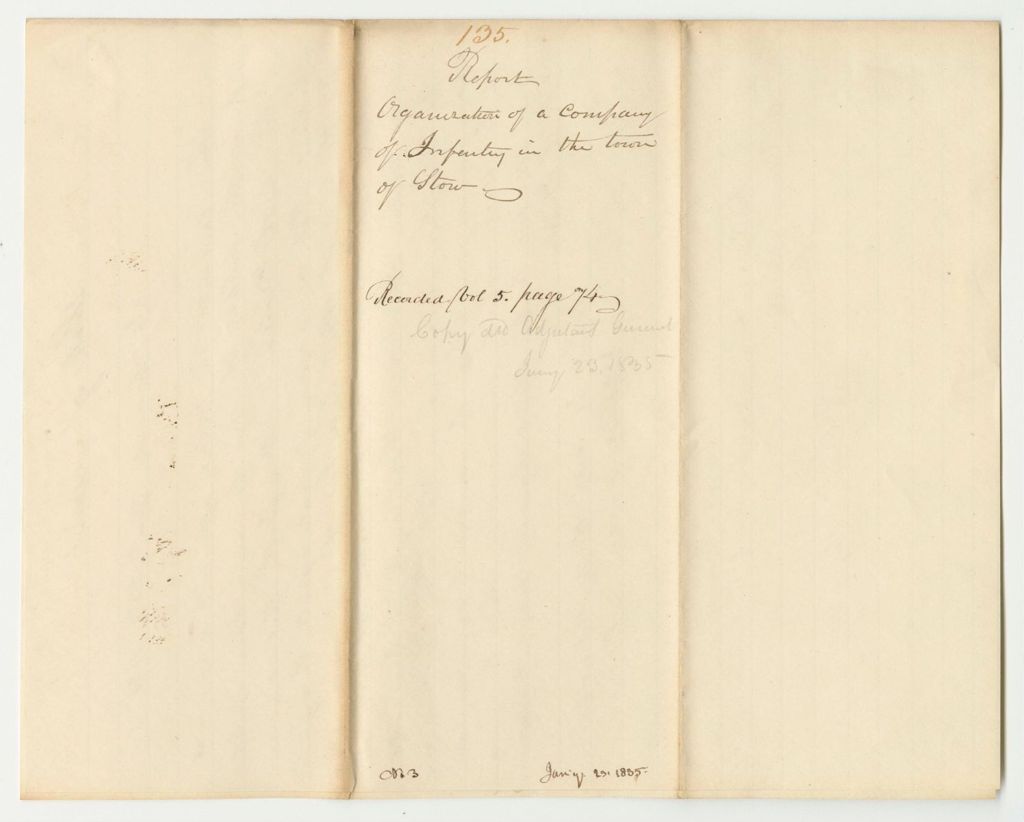 135.
Report
Organization of a Company
of Infantry in the town
of Stow
Recorded Vol 5. page 74
Copy Adjutant General
Jany 23. 1835
No 3
Jan'y. 23. 1835.